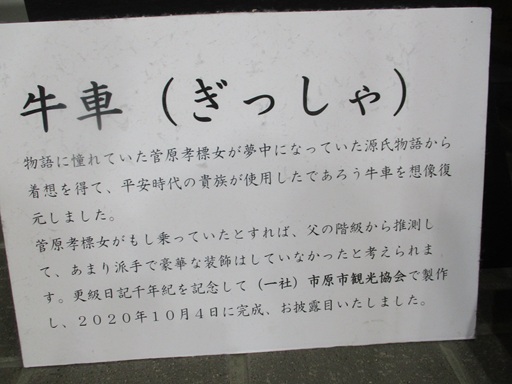 牛車（ぎっしゃ）
物語に憧れていた菅原孝標女が夢中になっていた源氏物語から
着想を得て、平安時代の貴族が使用したであろう牛車を想像復
元しました。
菅原孝標女がもし乗っていたとすれば、父の階級から推測し
て、あまり派手で豪華な装飾はしていなかったと考えられま
す。更級日記千年紀を記念して（一社）市原市観光協会で製作
し、２０２０年１０月４日に完成、お披露目いたしました。